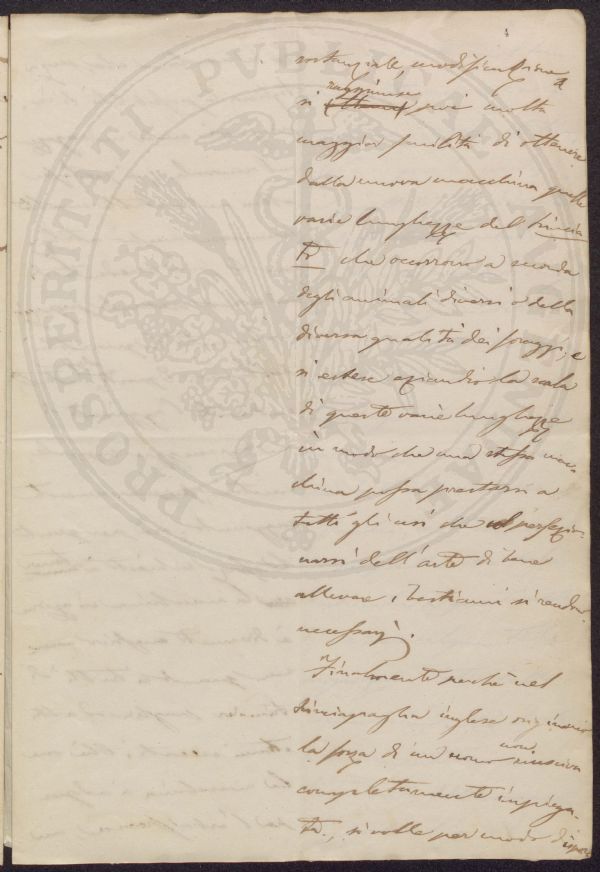 sostanziale, modificazione
si raggiunse poi molta
maggior facilità di ottenere
dalla nuova macchina quelle
varie lunghezze del trincia
to che occorrono a seconda
degli animali diversi o della
diversa qualità dei foraggi, e
si estese eziandio la scala
di queste varie lunghezze
in modo che una stessa mac-
china possa prestarsi a
tutti gli usi che nel perfezio-
narsi dell'arte di bene
allevare i bestiami si rendono
necessarj.
Finalmente perchè nel
trinciapaglia inglese originario
la forza di un uomo non riusciva
completamente impiega-
ta, si volle per modo
PROSPERITATI PUBLICAE AUGENDAE